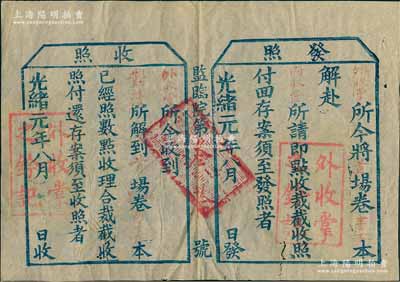 上海陽明拍賣
发照
所今將 場卷 本
解赴
所請即點收裁截收照
付回存案須至發照者
光緒元年八月 日發
監臨 第 號
收照
所今收到
所解到 場卷 本
已經照數點收理合裁截收
照付還存案須至收照者
光緒元年八月 日收
外收掌
外收掌
上海陽明拍賣